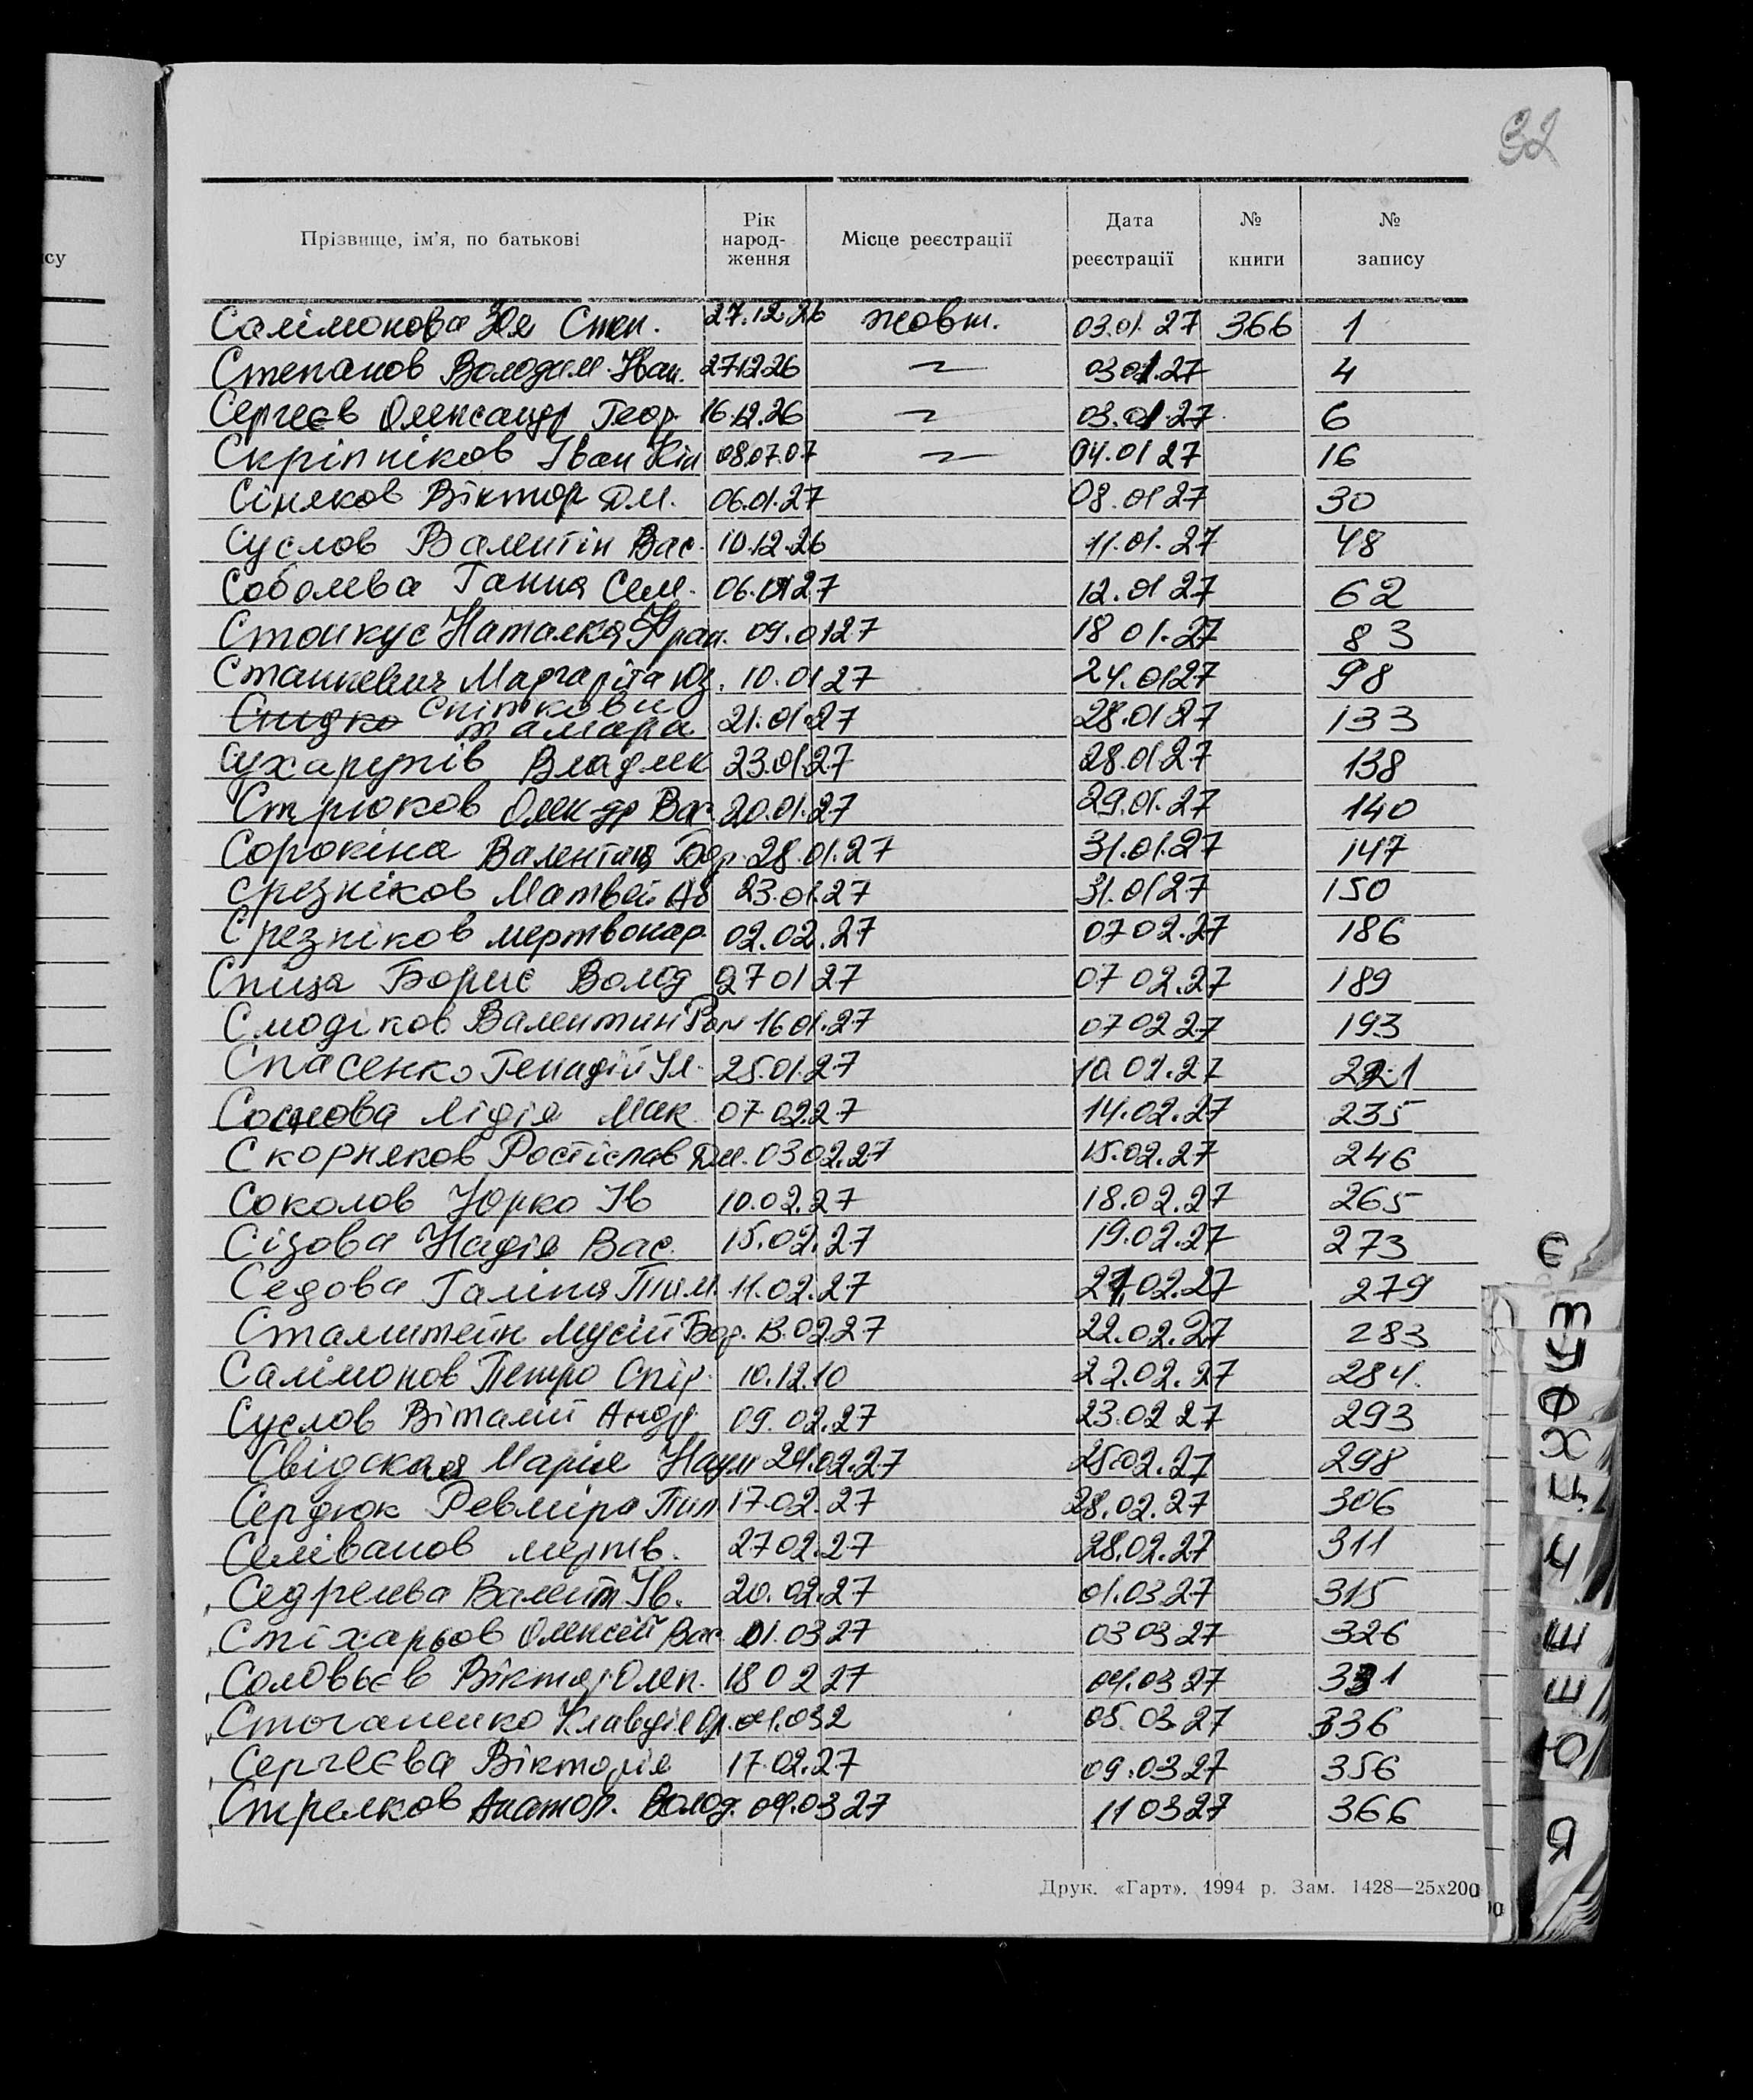 32
су
Прізвище, ім'я, по батькові Рік народ-ження Місце реєстрації Дата реєстрації № книги № запису
Салімонова Зоя Степ. 27.12.26 Жовт. 03.01.27 366 1
Степанов Володим. Іван. 27.12.26 03.01.27 4
Сергеєв Олександр Геор. 16.12.26 03.01.27 6
Скріпніков Іван 08.07.07 04.01.27 16
Сіняков Віктор Дм. 06.01.27 08.01.27 30
Суслов Валентін Вас. 10.12.26 11.01.27 48
Соболева Ганна Сем. 06.01.27 12.01.27 62
Стоикус Наталка Фран. 09.01.27 18.01.27 83
Станкевич Маргаріта Юз. 10.01.27 24.01.27 98
Тамара 21.01.27 28.01.27 133
23.01.27 28.01.27 138
Стрюков Олек-др Вас. 20.01.27 29.01.27 140
Сорокіна Валентина 28.01.27 31.01.27 147
Срезніков Матвей Аб 23.01.27 31.01.27 150
Срезніков мертвонар. 02.02.27 07.02.27 186
Спица Борис Волод 27.01.27 07.02.27 189
Смодіков Валентин Ром 16.01.27 07.02.27 193
Спасенко Генадій 25.01.27 10.02.27 221
Лідія Мак. 07.02.27 14.02.27 235
Скорняков Ростіслав Дм. 03.02.27 15.02.27 246
Соколов Юрко Ів 10.02.27 18.02.27 265
Сізова Надія Вас. 15.02.27 19.02.27 273
Седова Галина Тим. 11.02.27 21.02.27 279
Сталштейн Мусій Бор. 13.02.27 22.02.27 283
Салімонов Петро Спір. 10.12.10 22.02.27 284.
Суслов Віталій Андр 09.02.27 23.02.27 293
Свідская Марія Наум 24.02.27 25.02.27 298
Сердюк Ревміра Пил 17.02.27 28.02.27 306
Селіванов мертв. 27.02.27 28.02.27 311
Валент Ів. 20.02.27 01.03.27 315
Стіхарьов Олексей Вас 01.03.27 03.03.27 326
Соловьєв Віктор Олеп. 18.02.27 04.03.27 331
Стоганенко Клавдія Ор. 01.03.2 05.03.27 336
Сергеєва Вікторія 17.02.27 09.03.27 356
Стрелков Анатол. Волод. 04.03.27 11.03.27 366
Друк. «Гарт». 1994 р. Зам. 1428—25х200
Є
Т
У
Ф
Х
Ц
Ч
Ш
Щ
Ю
Я